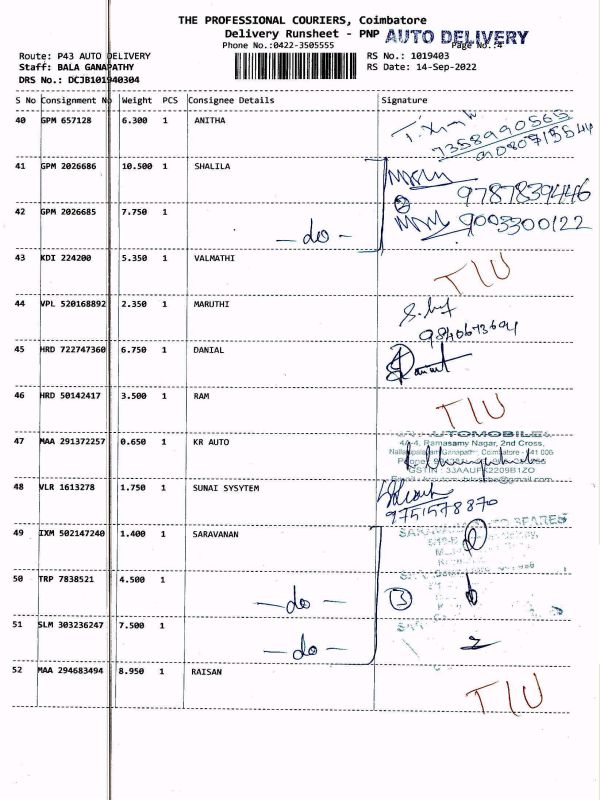 THE PROFESSIONAL COURIERS, Coimbatore
Delivery Runsheet - PNP AUTO DELIVERY
Phone No.:0422-3505555 Page No.:4
Route: P43 AUTO DELIVERY RS No.: 1019403
Staff: BALA GANAPATHY RS Date: 14-Sep-2022
DRS No.: DCJB101940304
S No Consignment No Weight PCS Consignee Details Signature
40 GPM 657128 6.300 1 ANITHA
7358990565
41 GPM 2026686 10.500 1 SHALILA
9787839446
2
42 GPM 2026685 7.750 1 - do - 9003300122
43 KDI 224200 5.350 1 VALMATHI TIU
44 VPL 520168892 2.350 1 MARUTHI
9840673694
45 HRD 722747360 6.750 1 DANIAL
46 HRD 50142417 3.500 1 RAM TIU
AUTOMOBILES
47 MAA 291372257 0.650 1 KR AUTO 4A-4, Ramasamy Nagar, 2nd Cross,
48 VLR 1613278 1.750 1 SUNAI SYSYTEM
9751578870
49 IXM 502147240 1.400 1 SARAVANAN
50 TRP 7838521 4.500 1 - do - 3
51 SLM 303236247 7.500 1 - do -
52 MAA 294683494 8.950 1 RAISAN TIU